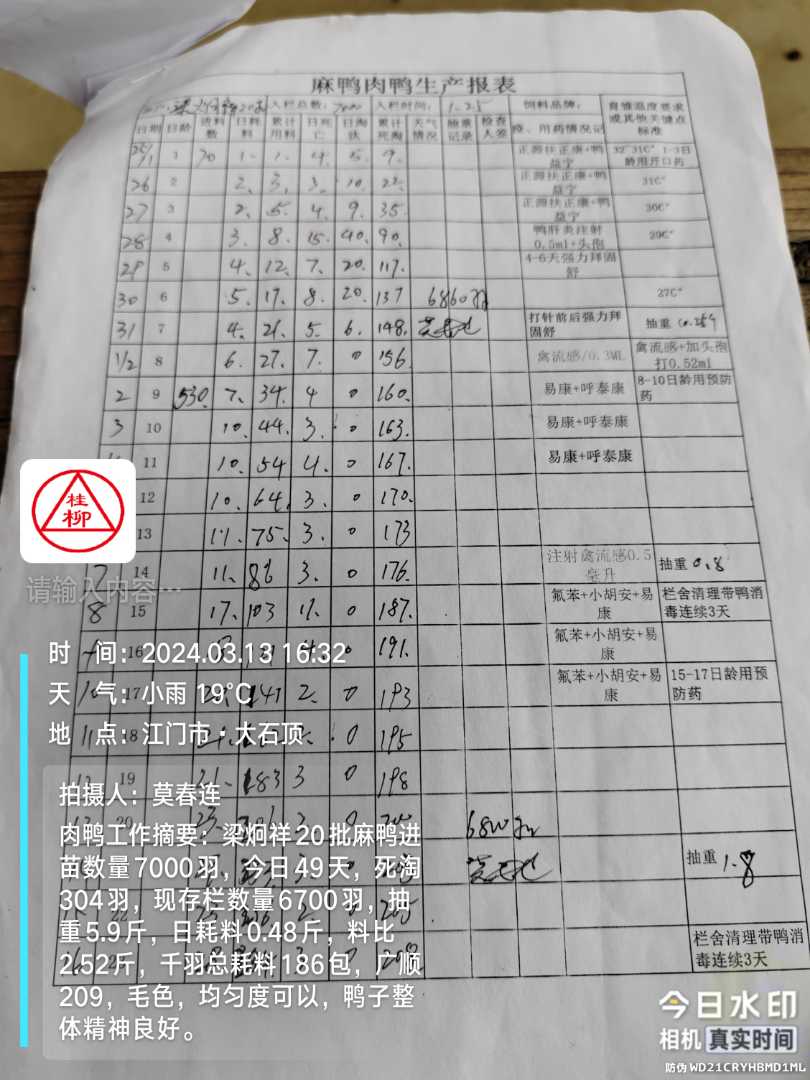 麻鸭肉鸭生产报表
入栏总数： 7000 入栏时间： 1-25 饲料品牌： 育雏温度要求或其他关键点标准
日期 日龄 进料数 日耗料 累计用料 日死亡 日淘汰 累计死淘 天气情况 抽重记录 检查人签 疫、用药情况记
25/1 1 70 1. 1. 4. 5. 9. 正源扶正康+鸭益宁 32°31C° 1-3日龄用开口药
26 2 2. 3. 3. 10. 22. 正源扶正康+鸭益宁 31C°
27 3 2. 5. 4. 9. 35. 正源扶正康+鸭益宁 30C°
28 4 3. 8. 15. 40. 90. 鸭肝炎注射0.5ml+头孢 29C°
29 5 4. 12. 7. 20. 117. 4-6天强力拜固舒
30 6 5. 17. 8. 20. 137 6860羽 27C°
31 7 4. 21. 5. 6. 148. 打针前后强力拜固舒 抽重
1/2 8 6. 27. 7. 0 156. 禽流感/0.3ML 禽流感+加头孢打0.52ml
2 9 530. 7. 34. 4 0 160. 易康+呼泰康 8-10日龄用预防药
3 10 10. 44. 3. 0 163. 易康+呼泰康
11 10. 54 4. 0 167. 易康+呼泰康
12 10. 64. 3. 0 170.
13 11. 75. 3. 0 173
7 14 11. 86 3. 0 176. 注射禽流感0.5毫升 抽重 0.8
8 15 17. 103 11. 0 187. 氟苯+小胡安+易康 栏舍清理带鸭消毒连续3天
16 0 191. 氟苯+小胡安+易康
10 17 141 2. 0 193 氟苯+小胡安+易康 15-17日龄用预防药
11 18 0 195
19 21. 183 3 0 198
20 抽重 1.8
22
栏舍清理带鸭消毒连续3天
桂柳
请输入内容…
时 间：2024.03.13 16:32
天 气：小雨 19℃
地 点：江门市·大石顶
拍摄人：莫春连
肉鸭工作摘要：梁炯祥20批麻鸭进
苗数量7000羽，今日49天，死淘
304羽，现存栏数量6700羽，抽
重5.9斤，日耗料0.48斤，料比
2.52斤，千羽总耗料186包，广顺
209，毛色，均匀度可以，鸭子整
体精神良好。
今日水印
相机 真实时间
防伪 WD21CRYHBMD1ML